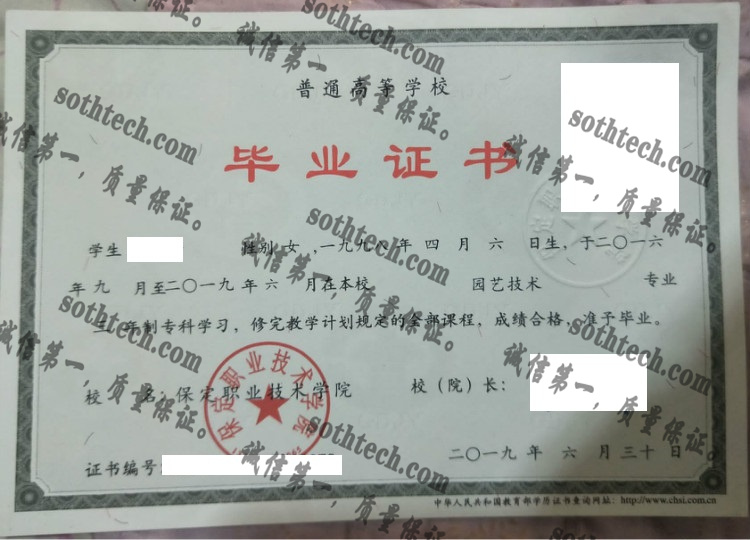 普通高等学校
毕业证书
学生 性别 女 ,一九九八年 四 月 六 日生, 于二〇一六
年 九 月至二〇一九年 六 月在本校 园艺技术 专业
三 年制专科学习, 修完教学计划规定的全部课程, 成绩合格, 准予毕业。
校 名: 保定职业技术学院 校（院）长:
保定职业技术学院
二〇一九 年 六 月 三十 日
证书编号:
中华人民共和国教育部学历证书查询网址: http://www.chsi.com.cn
sothtech.com
诚信第一，质量保证。
sothtech.com
诚信第一，质量保证。
sothtech.com
诚信第一，质量保证。
sothtech.com
诚信第一，质量保证。
sothtech.com
诚信第一，质量保证。
sothtech.com
诚信第一，质量保证。
sothtech.com
诚信第一，质量保证。